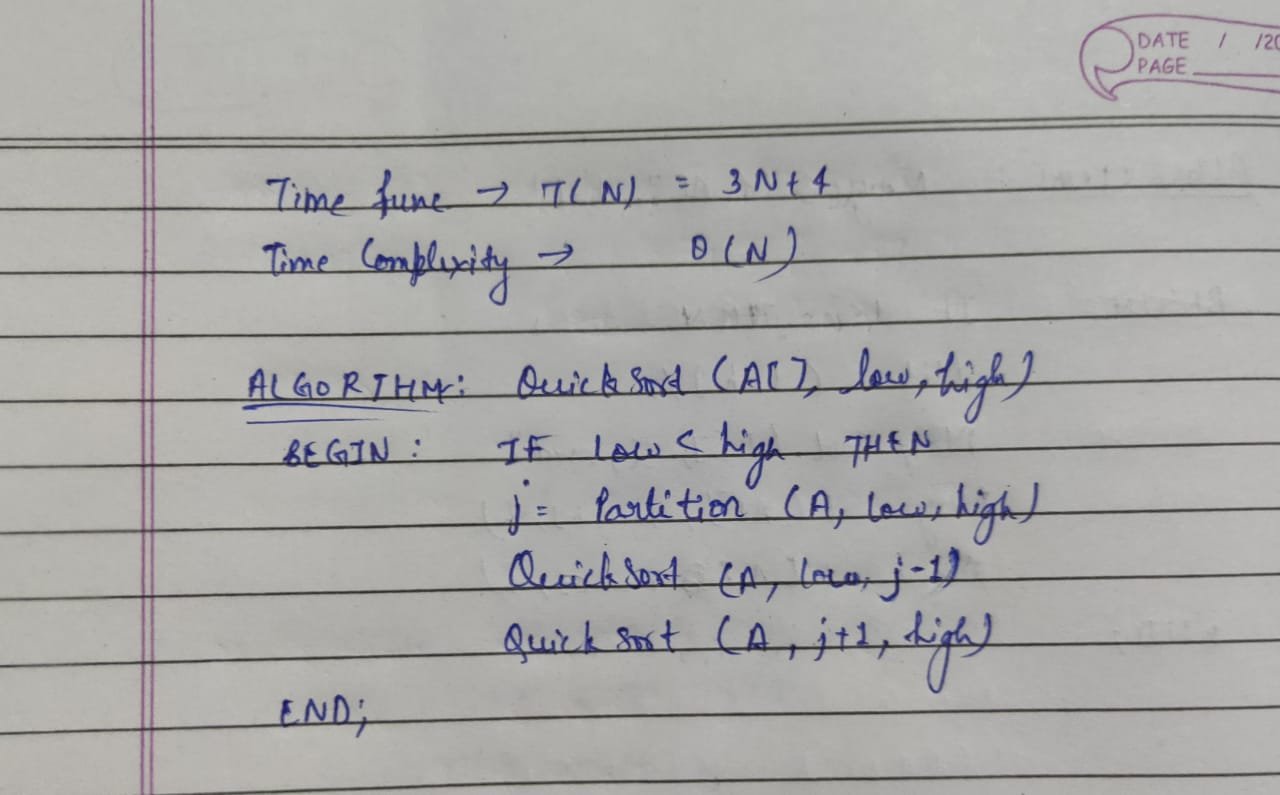 DATE / /20
PAGE
Time func → T(N) = 3N+4
Time Complexity → θ(N)
ALGORITHM: Quick Sort (A[], low, high)
BEGIN : IF low < high THEN
j = Partition (A, low, high)
Quick Sort (A, low, j-1)
Quick Sort (A, j+1, high)
END;